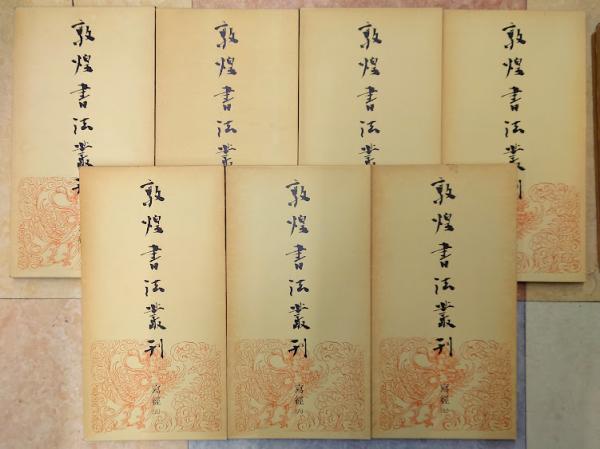 敦煌書法叢刊
敦煌書法叢刊
敦煌書法叢刊
敦煌書法叢刊
敦煌書法叢刊
寫經
敦煌書法叢刊
寫經
敦煌書法叢刊
寫經